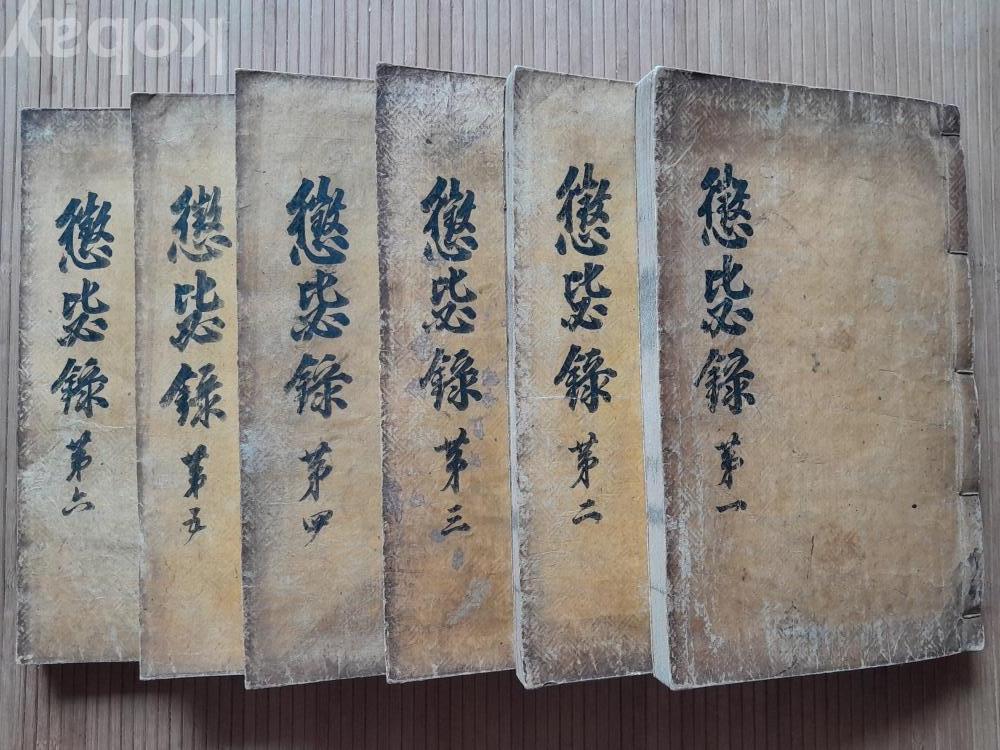 懲毖錄 第一
懲毖錄 第二
懲毖錄 第三
懲毖錄 第四
懲毖錄 第五
懲毖錄 第六
kobay